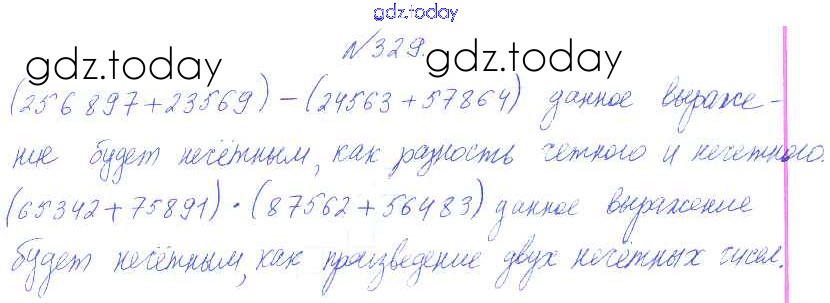 gdz.today
№329.
gdz.today gdz.today
(256897+23569)-(24563+57864) данное выраже-
ние будет нечётным, как разность четного и нечетного.
(65342+75891)·(87562+56483) данное выражение
будет нечётным, как произведение двух нечётных чисел.